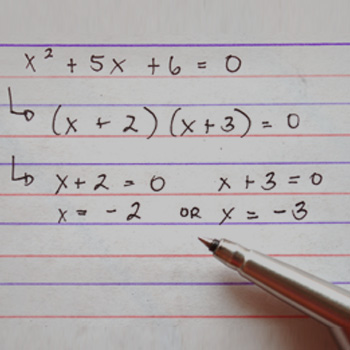 x² + 5x + 6 = 0
(x + 2)(x + 3) = 0
x + 2 = 0 x + 3 = 0
x = -2 OR x = -3